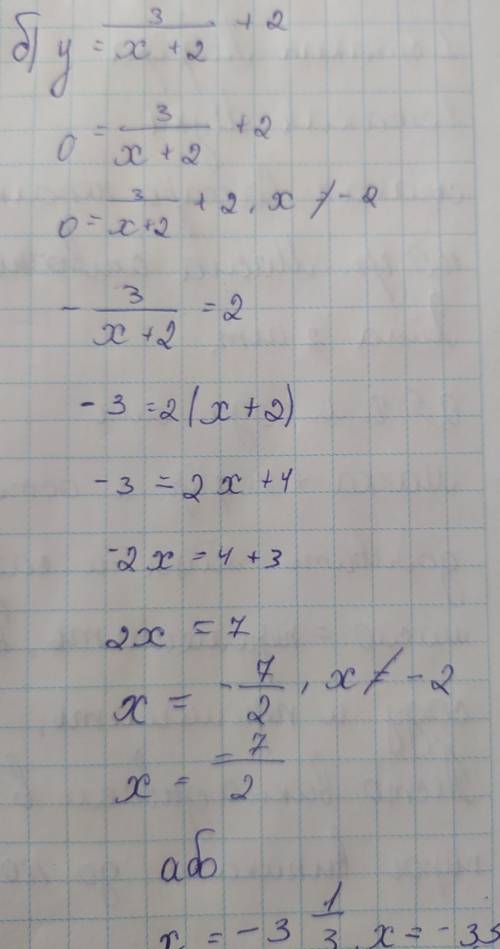 б) y = 3/(x + 2) + 2
0 = 3/(x + 2) + 2
0 = 3/(x+2) + 2, x ≠ -2
- 3/(x + 2) = 2
- 3 = 2(x + 2)
- 3 = 2x + 4
-2x = 4 + 3
2x = 7
x = - 7/2, x ≠ - 2
x = -7/2
або
x = - 3 1/3, x = - 3,3